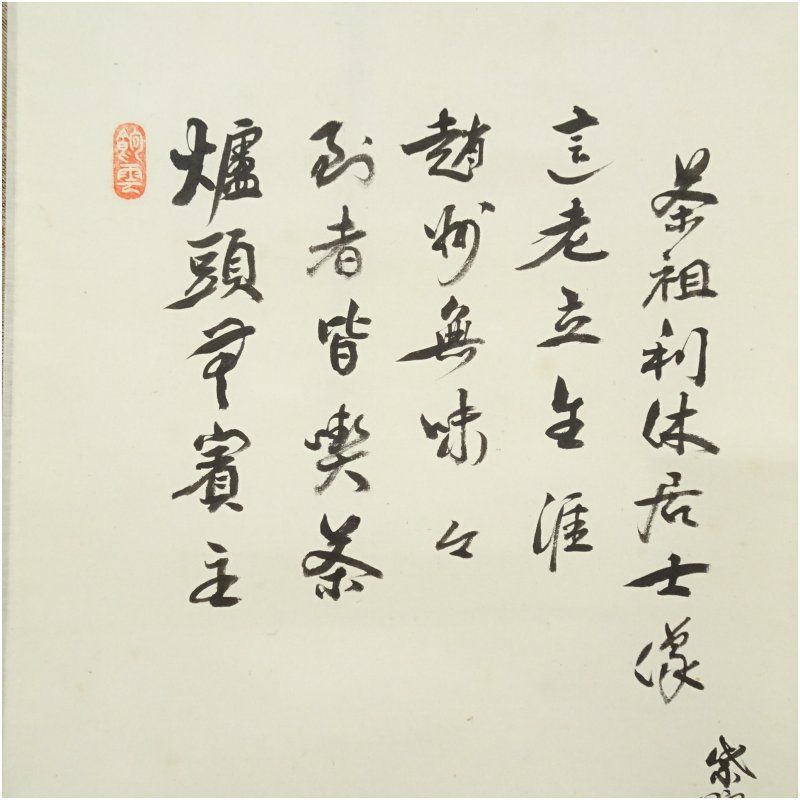 茶祖利休居士像
這老立生涯
趙州無味々
到者皆喫茶
爐頭無賓主
紫